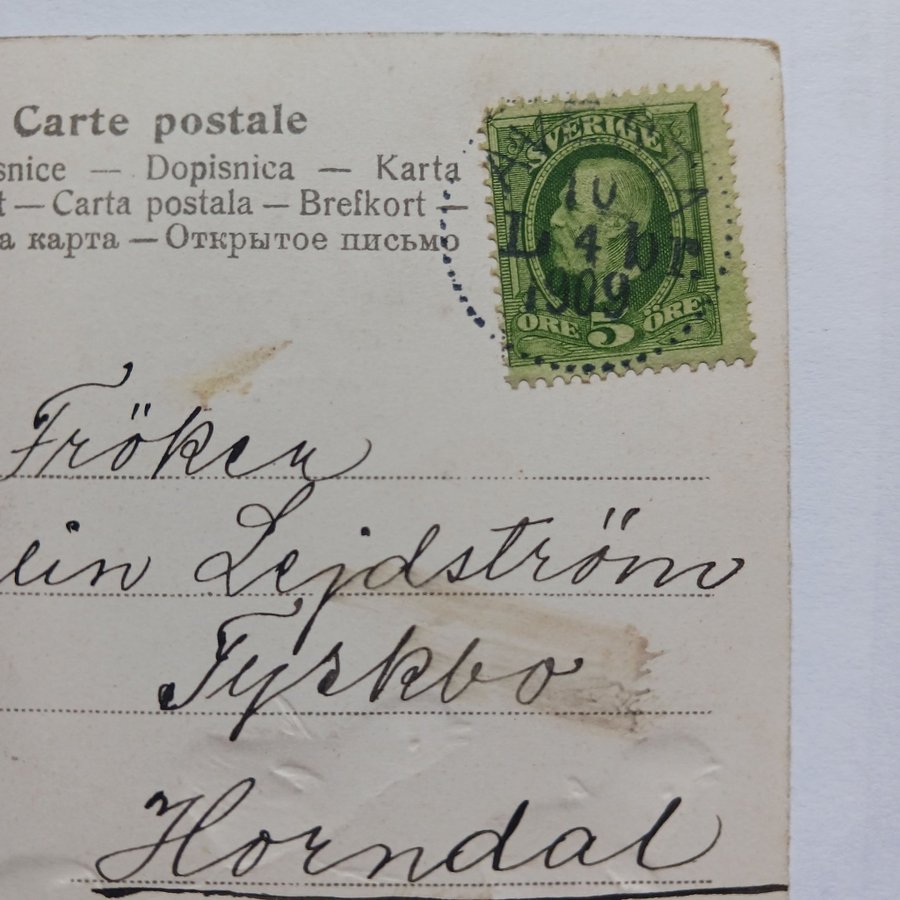 Carte postale
snice — Dopisnica — Karta
t — Carta postala — Brefkort —
а карта — Открытое письмо
SVERIGE
10
4
1909
ÖRE 5 ÖRE
Fröken
ein Lejdström
Tyskbo
Horndal